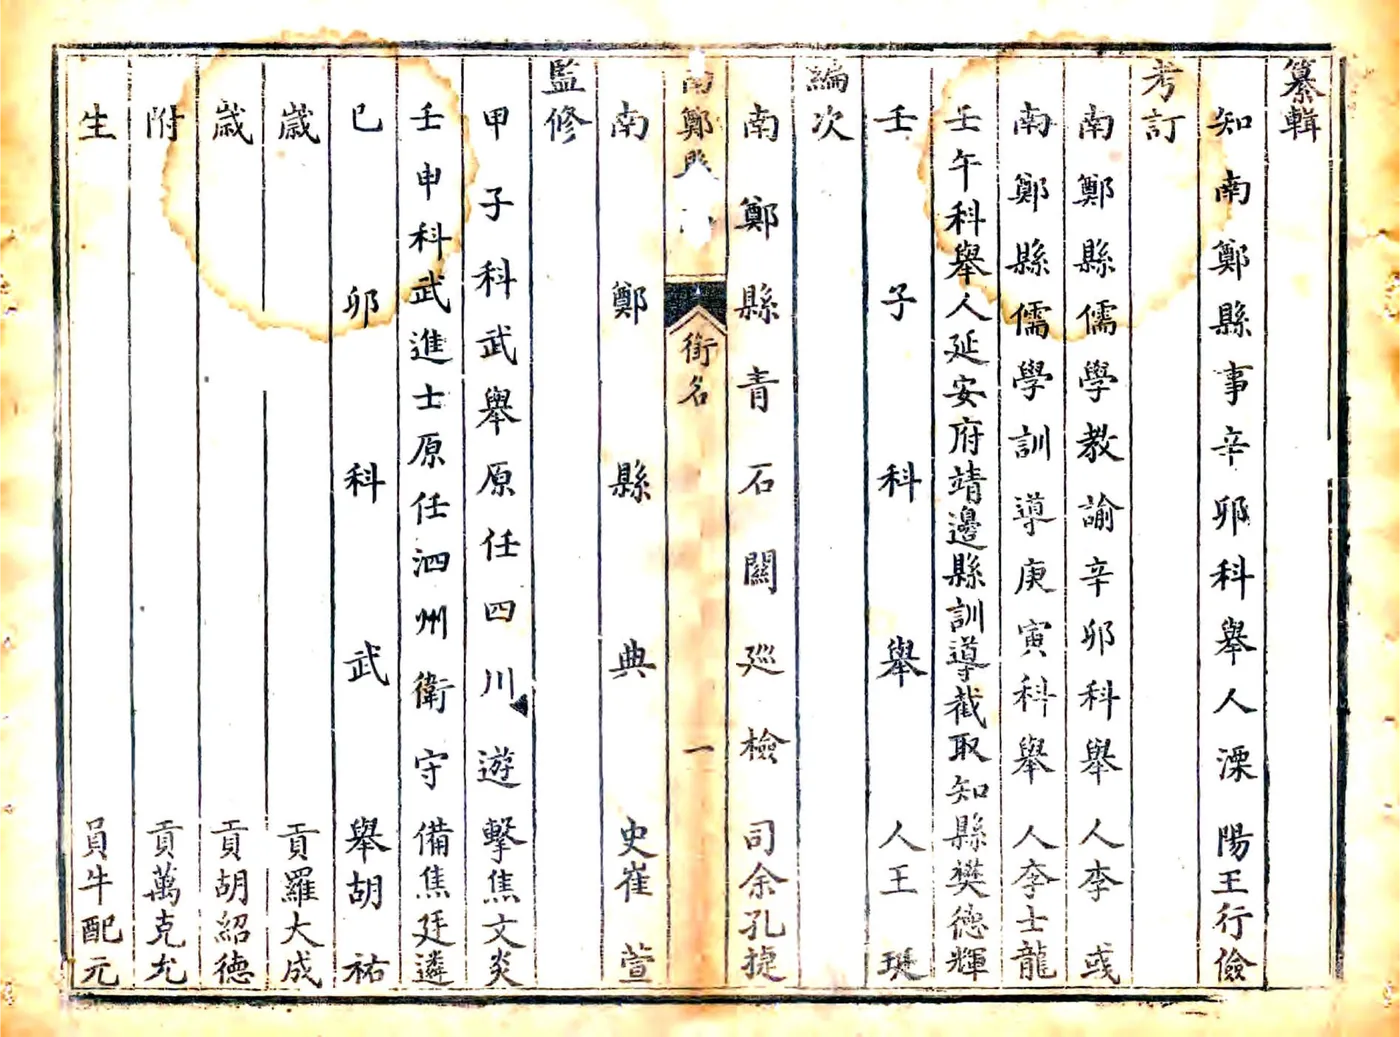 纂輯
知南鄭縣事辛卯科舉人溧陽王行儉
考訂
南鄭縣儒學教諭辛卯科舉人李彧
南鄭縣儒學訓導庚寅科舉人李士龍
壬午科舉人延安府靖邊縣訓導截取知縣樊德輝
壬子科舉人王珽
編次
南鄭縣青石關巡檢司余孔捷
南鄭縣
銜名
一
南鄭縣典史崔萱
監修
甲子科武舉原任四川遊擊焦文炎
壬申科武進士原任泗州衛守備焦廷遴
已卯科武舉胡祐
歲貢羅大成
歲貢胡紹德
附貢萬克尤
生員牛配元